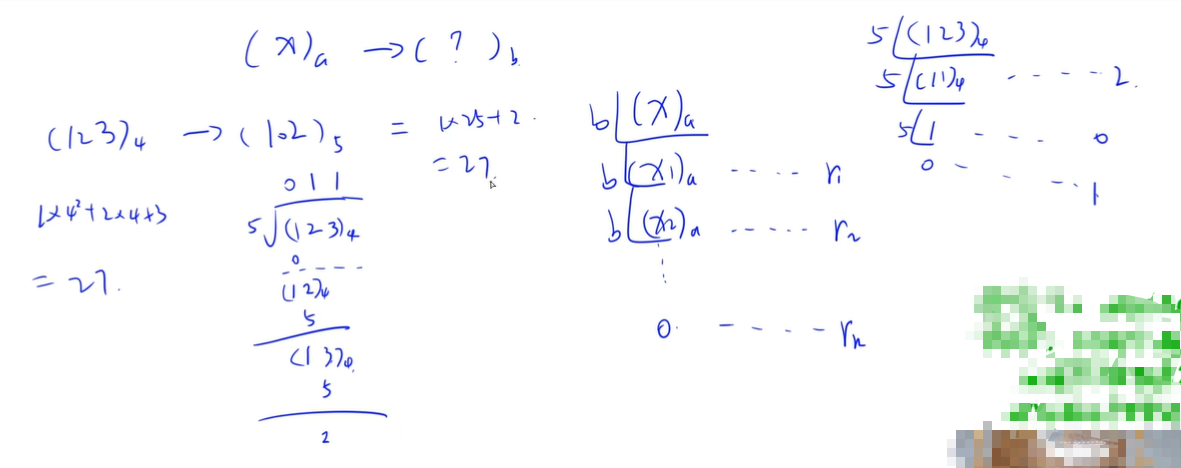 (x)ₐ → ( ? )_b
(123)₄ → (102)₅ = 1×25+2.
= 27.
1×4²+2×4+3
= 27.
011
5√(123)₄
0
(12)₄
5
(13)₄
5
2
b (x)ₐ
b (x1)ₐ ····· r₁
b (x2)ₐ ······ r₂
⋮
0. ----- rₙ
5 (123)₄
5 (11)₄ ····· 2.
5 1 --- 0
0 ---- 1